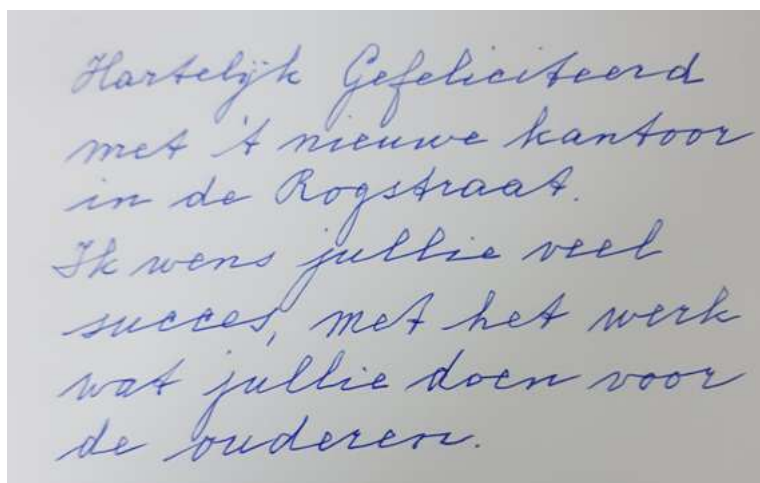 Hartelijk Gefeliciteerd
met 't nieuwe kantoor
in de Rogstraat.
Ik wens jullie veel
succes, met het werk
wat jullie doen voor
de ouderen.